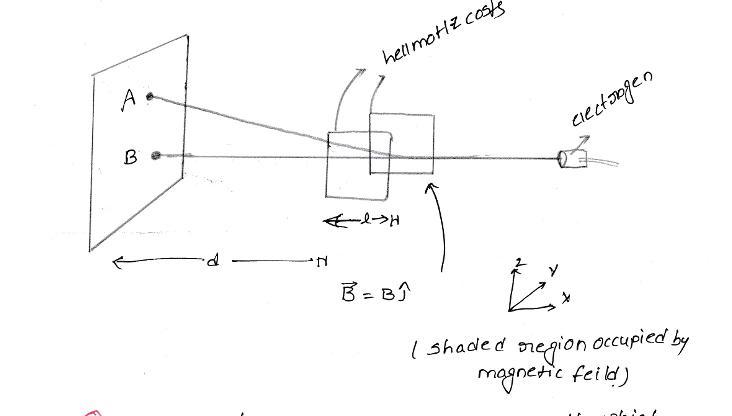 hellmotlz costs
electrogen
A
B
l
d
B = Bĵ
Z
Y
X
( shaded region occupied by
magnetic feild)